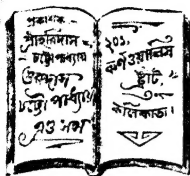 প্রকাশক-
শ্রীহরিদাস
চট্টোপাধ্যায়
গুরুদাস
চট্টোপাধ্যায়
এণ্ড সন্স
২০১,
কর্ণওয়ালিস
ষ্ট্রীট,
কলিকাতা।